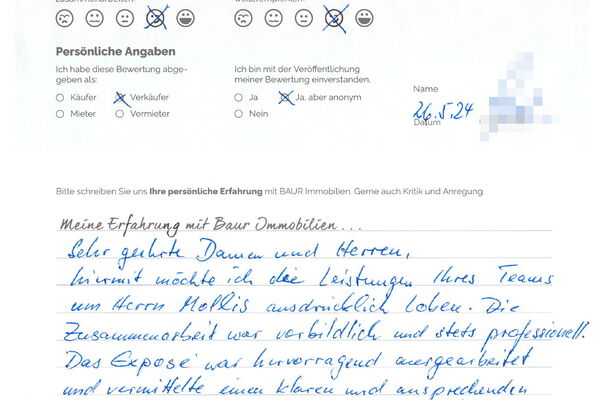 zusammenarbeiten.
weiterempfehlen.
Persönliche Angaben
Ich habe diese Bewertung abge-
geben als:
Käufer Verkäufer
Mieter Vermieter
Ich bin mit der Veröffentlichung
meiner Bewertung einverstanden.
Ja Ja, aber anonym
Nein
Name
26.5.24
Datum
Bitte schreiben Sie uns Ihre persönliche Erfahrung mit BAUR Immobilien. Gerne auch Kritik und Anregung.
Meine Erfahrung mit Baur Immobilien...
Sehr geehrte Damen und Herren,
hiermit möchte ich die Leistungen Ihres Teams
um Herrn Mollis ausdrücklich loben. Die
Zusammenarbeit war vorbildlich und stets professionell.
Das Exposé war hervorragend ausgearbeitet
und vermittelte einen klaren und ansprechenden